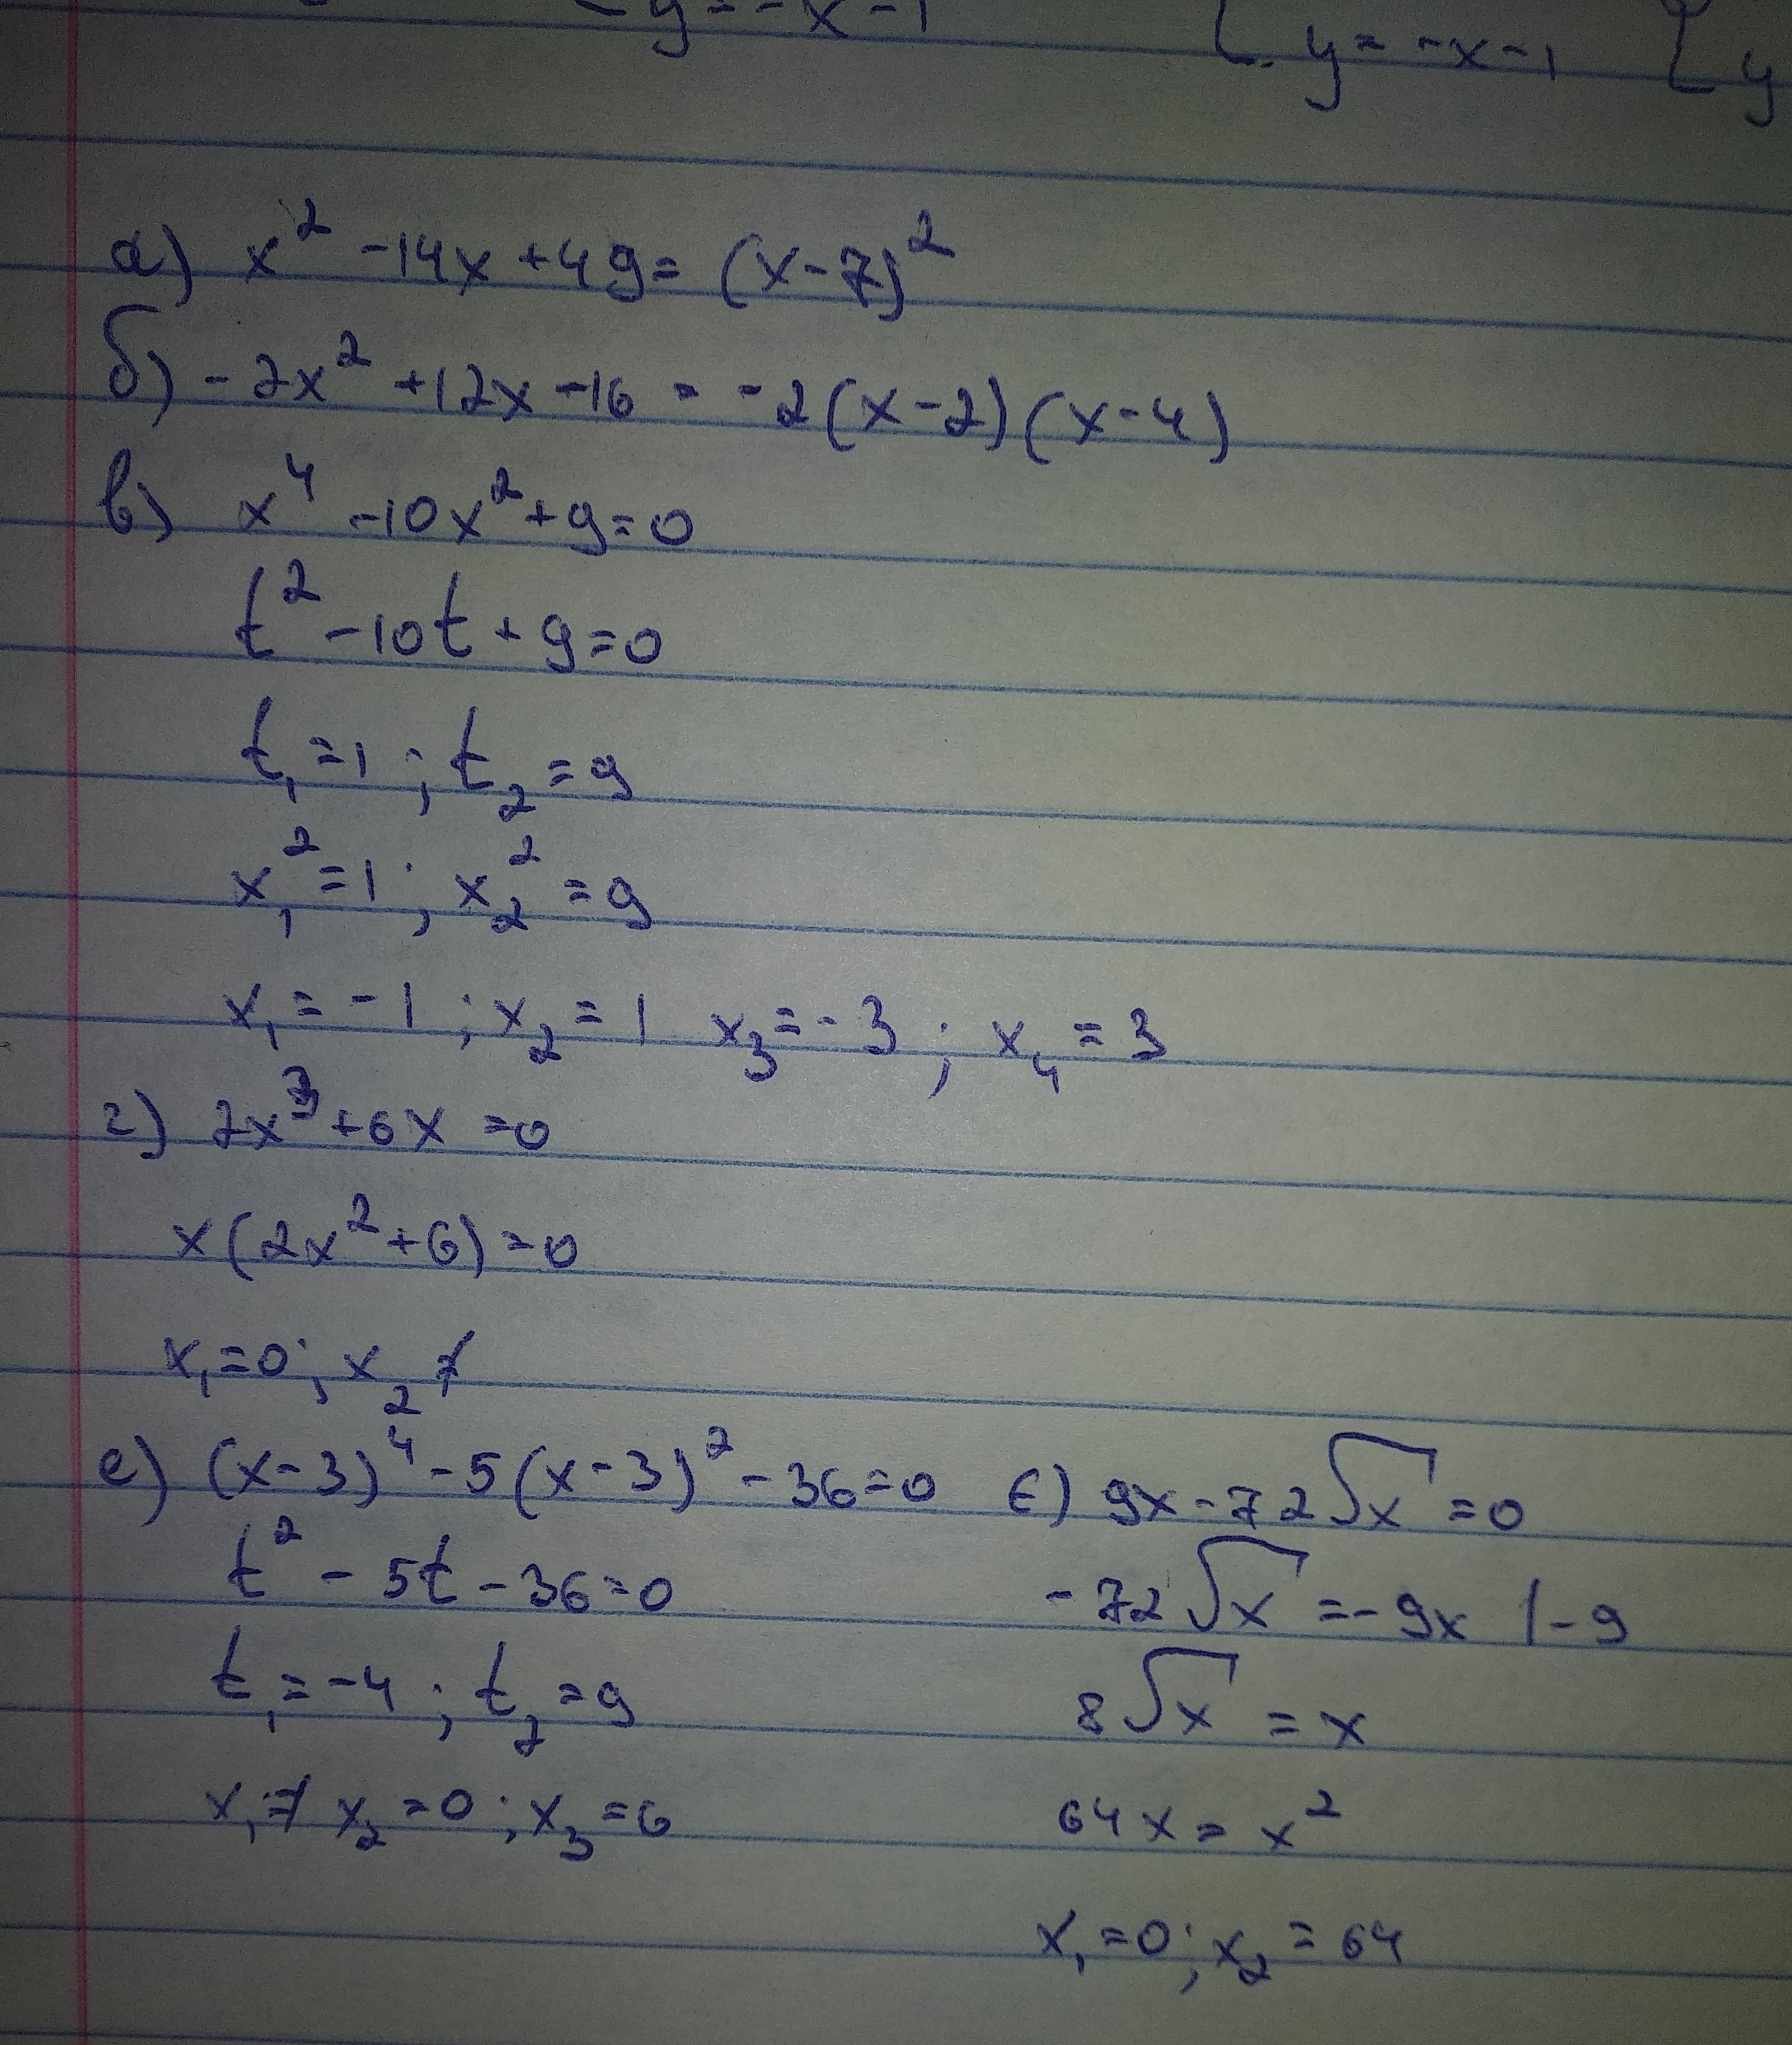 y = -x-1
{ y = -x-1 { y
а) x² -14x +49 = (x-7)²
б) -2x² +12x -16 = -2(x-2)(x-4)
в) x⁴ -10x² +9=0
t² -10t +9=0
t₁ =1 ; t₂ =9
x₁² =1 ; x₂² =9
x₁ = -1 ; x₂ = 1 x₃ = -3 ; x₄ = 3
г) 2x³ +6x =0
x(2x² +6) =0
x₁ =0 ; x₂ ≠
е) (x-3)⁴ -5(x-3)² -36=0
t² - 5t -36=0
t₁ = -4 ; t₂ =9
x₁ ≠ x₂ =0 ; x₃ =6
є) 9x -72√x =0
-72√x = -9x |-9
8√x = x
64x = x²
x₁ =0 ; x₂ = 64